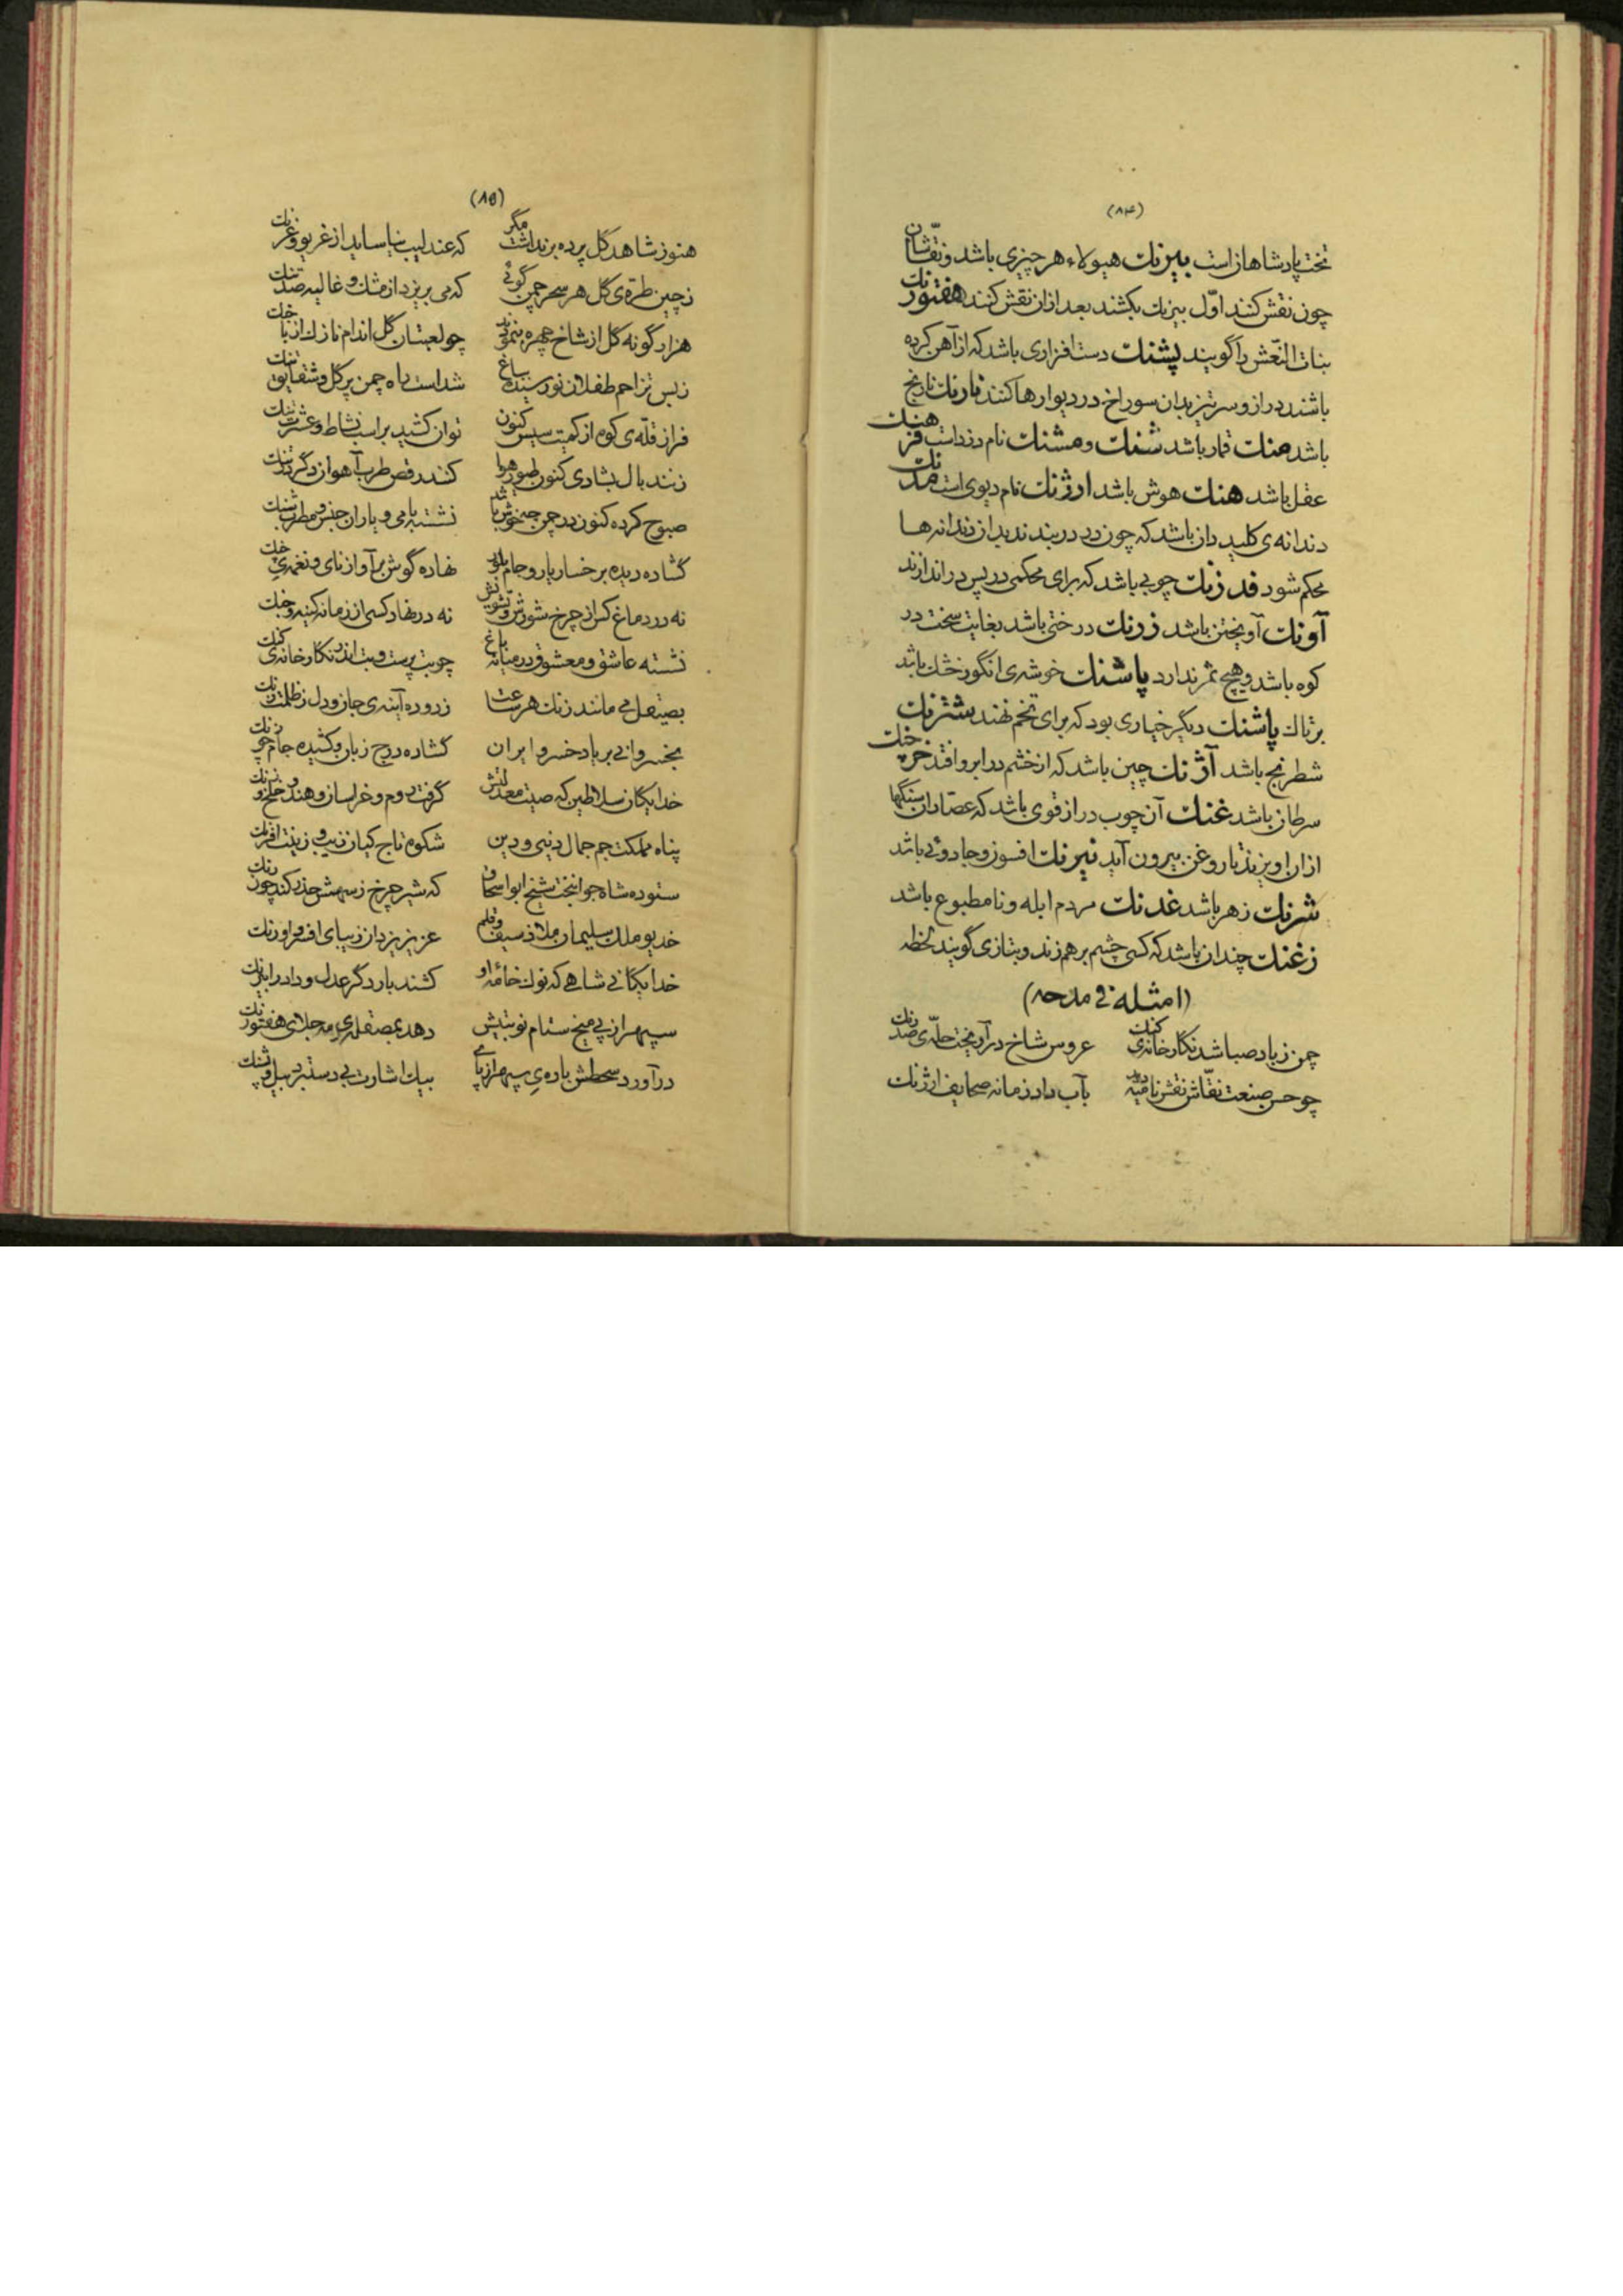 (۸۴)
تخت پادشاهان است بیرنك هیولاء هر چیزی باشد و نقّاشان
چون نقش کنند اوّل بیرنك بکشند بعد از ان نقش کنند هفتورنك
بنات النّعش را گویند پشنك دست افزاری باشد که از آهن کرده
باشند دراز و سر تیز بدان سوراخ در دیوارها کنند نارنك نارنج
باشد منك قمار باشد شنك و مشنك نام دزد است فرهنك
عقل باشد هنك هوش باشد ارژنك نام دیوی است مدنك
دندانه‌ی کلید دان باشد که چون در دربندند بدان دندانه‌ها
محکم شود فدرنك چوبی باشد که برای محکمی در پس در اندازند
آونك آویختن باشد زرنك درختی باشد بغایت سخت در
کوه باشد و هیچ ثمر ندارد پاشنك خوشه‌ی انگور خشك باشد
بر تاك پاشنك دیگر خیاری بود که برای تخم نهند شترنك
شطرنج باشد آژنك چین باشد که از خشم در ابرو افتد خرچنك
سرطان باشد غنك آن چوب دراز قوی باشد که عصّاران سنگها
از ان اویزند تا روغن بیرون آید نیرنك افسون و جادوئی باشد
شرنك زهر باشد غدنك مردم ابله و نامطبوع باشد
زغنك چندان باشد که کسی چشم بر هم زند و بتازی گویند لحظه
(امثله فی مدحه)
چمن ز باد صبا شد نگارخانه‌ی کنك عروس شاخ درآویخت حلّه‌ی صد رنك
چو حسن صنعت نقّاش نقش نامیه دید بآب داد زمانه صحایف ارژنك
(۸۵)
هنوز شاهد گل پرده بر نداشت مگر که عندلیب نیاساید از غریو و غرنك
ز چین طره‌ی گل هر سحر چمن گوئی که می بریزد از مشك و غالیه صد تنك
هزار گونه گل از شاخ چهره بنمودند چو لعبتان گل اندام نازك از
ز بس تزاحم طفلان نورسیده بباغ شداست راه چمن پر گل و شقایق تنك
فراز قلّه‌ی کوه از کمیت سیس کنون توان کشید بر اسب نشاط و عشرت تنك
زنند بال بشادی کنون طیور هوا کنند رقص طرب آهوان دگر در
صبوح کرده کنون در چمن چه خوش باشد نشسته با می و یاران جنس و مطرب شنك
گشاده دیده بر رخسار یار و جام بلور نهاده گوش بر آواز نای و نغمه‌ی چنك
نه در دماغ کس از چرخ شورش و تشویش نه در نهاد کسی از زمانه کینه و جنك
نشسته عاشق و معشوق در میانه باغ چو بت پرست و بت اندر نگارخانه‌ی کنك
بصیقل می مانند زنك هر ساعت زدوده آینه‌ی جان و دل ز ظلمت زنك
بخسروانی بر یاد خسرو ایران گشاده درج زبان و کشیده جام چو
خدایگان سلاطین که صیت معدلتش گرفت روم و خراسان و هند و خلّخ و
پناه مملکت جم جمال دنیی و دین شکوه تاج کیان زیب و زینت افرنك
ستوده شاه جوانبخت شیخ ابو اسحاق که شیر چرخ ز سهمش حذر کند چون رنك
خدیو ملك سلیمان ملاذ سیف و قلم عزیز یزدان زیبای افسر و اورنك
خدایگانی شاهی که نوك خامهٔ او کشند بار دگر عدل و داد را بیرنك
سپهر از پی میخ ستام نوبتیش دهد بمصقله‌ی مه جلای هفتورنك
درآورد سخطش باره‌ی سپهر از پای بیك اشارت بی دستبرد بیل و پشنك